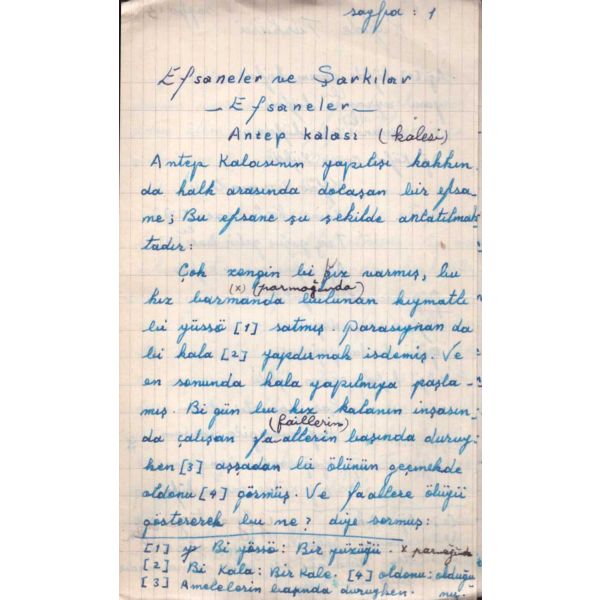 sayfa : 1
Efsaneler ve Şarkılar
— Efsaneler —
Antep kalası (kalesi)
Antep Kalasının yapılışı hakkın
da halk arasında dolaşan bir efsa-
ne; Bu efsane şu şekilde anlatılmak
tadır:
Çok zengin bi kız varmış, bu
(x) (parmağında)
kız barmanda bulunan kıymatlı
bi yüssö [1] satmış. Parasıynan da
bi kala [2] yapdırmak isdemiş. Ve
en sonunda kala yapılmıya başla-
mış. Bi gün bu kız kalanın inşasın-
(faillerin)
da çalışan faallerin başında duruy-
ken [3] aşşadan bi ölünün geçmekde
oldonu [4] görmüş. Ve faallere ölüyü
göstererek bu ne? diye sormuş:
[1] Bi yössö: Bir yüzüğü. x parmağında
[2] Bi Kala: Bir Kale. [4] oldonu: olduğu
nu.
[3] Amelelerin başında duruyken.